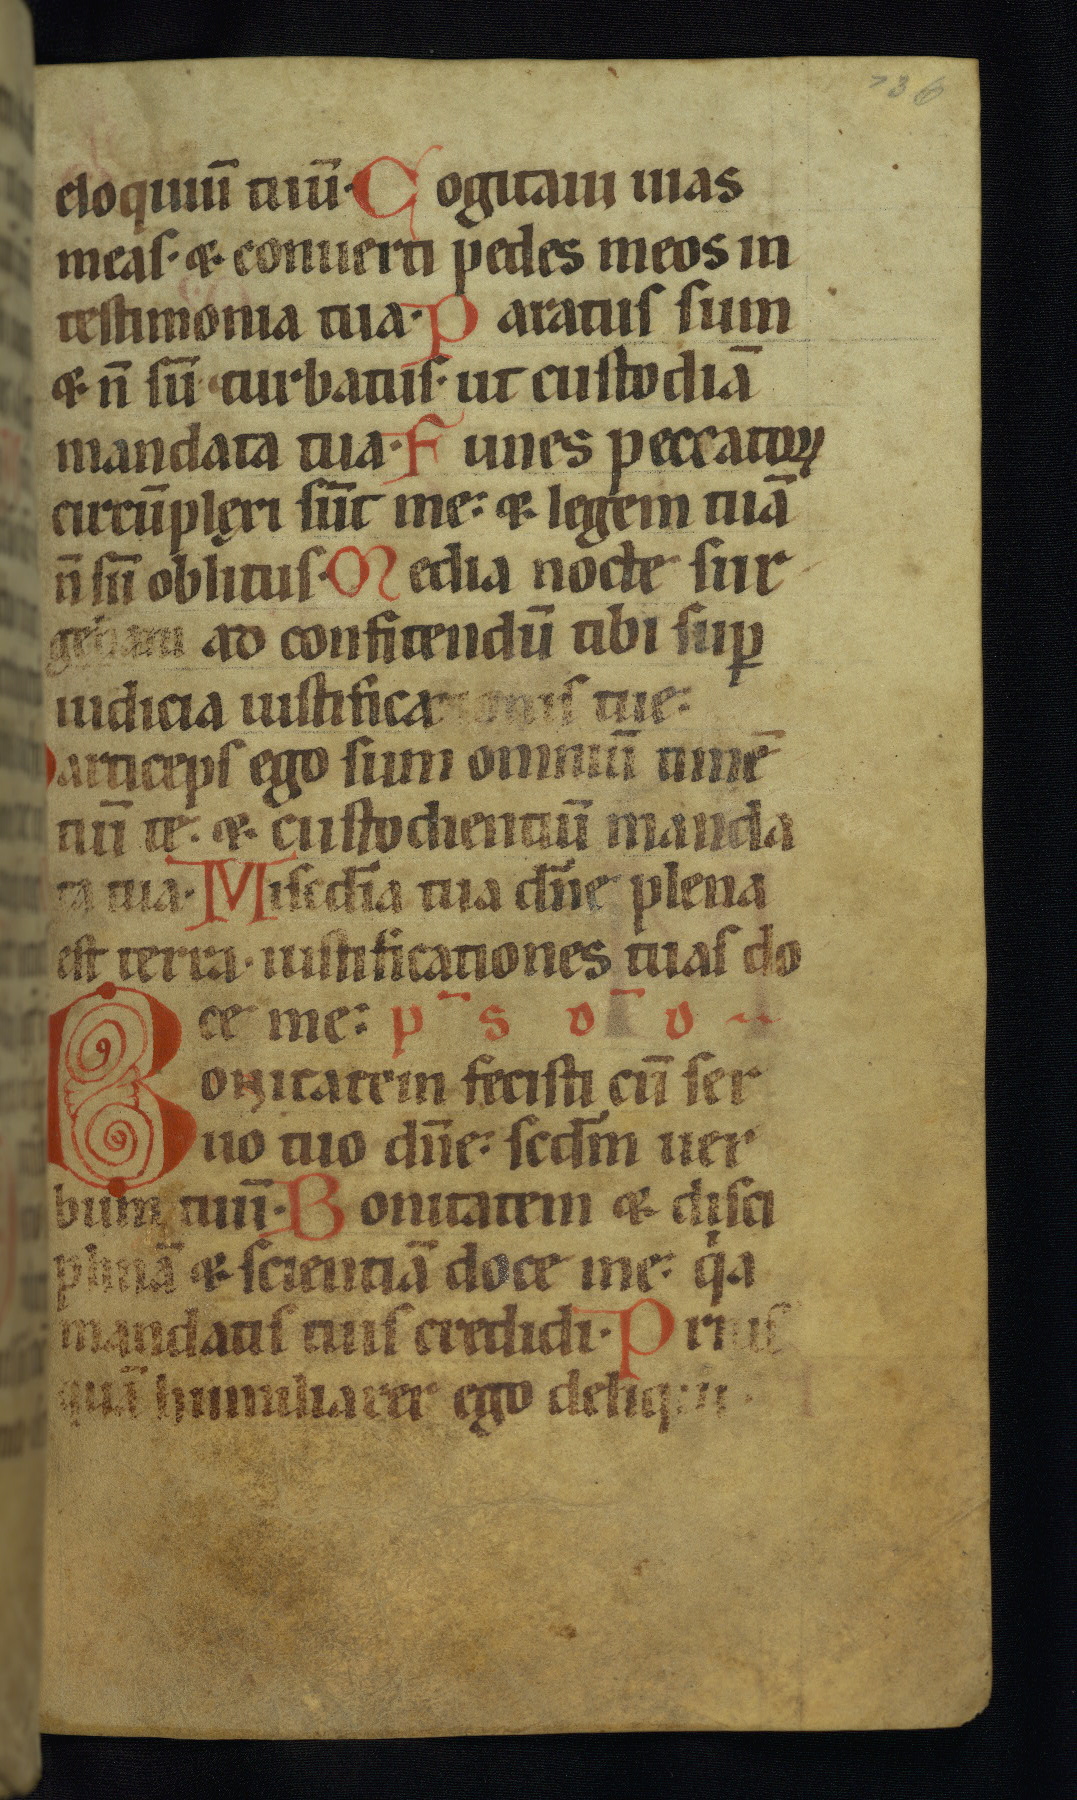 736
eloquiū tuū· Cogitaui uias
meas· & conuerti pedes meos in
testimonia tua· Paratus sum
& n̄ sū turbatus· ut custodiā
mandata tua· Funes peccatoꝝ
circūplęxi sūt me: & legem tuā
n̄ sū oblitus· Media nocte sur
gebam ad confitendū tibi suꝑ
iudicia iustificationis tue:
Particeps ego sum omniū timē
tiū te· & custodientiū manda
ta tua· Misc̄dia tua dn̄e plena
est terra· iustificationes tuas do
ce me: p̄ s ō o
Bonitatem fecisti cū ser
uo tuo dn̄e: scd̄m uer
bum tuū· Bonitatem & disci
plinā & scientiā doce me: qa
mandatis tuis credidi· Prius
quā humiliarer ego deliqui·